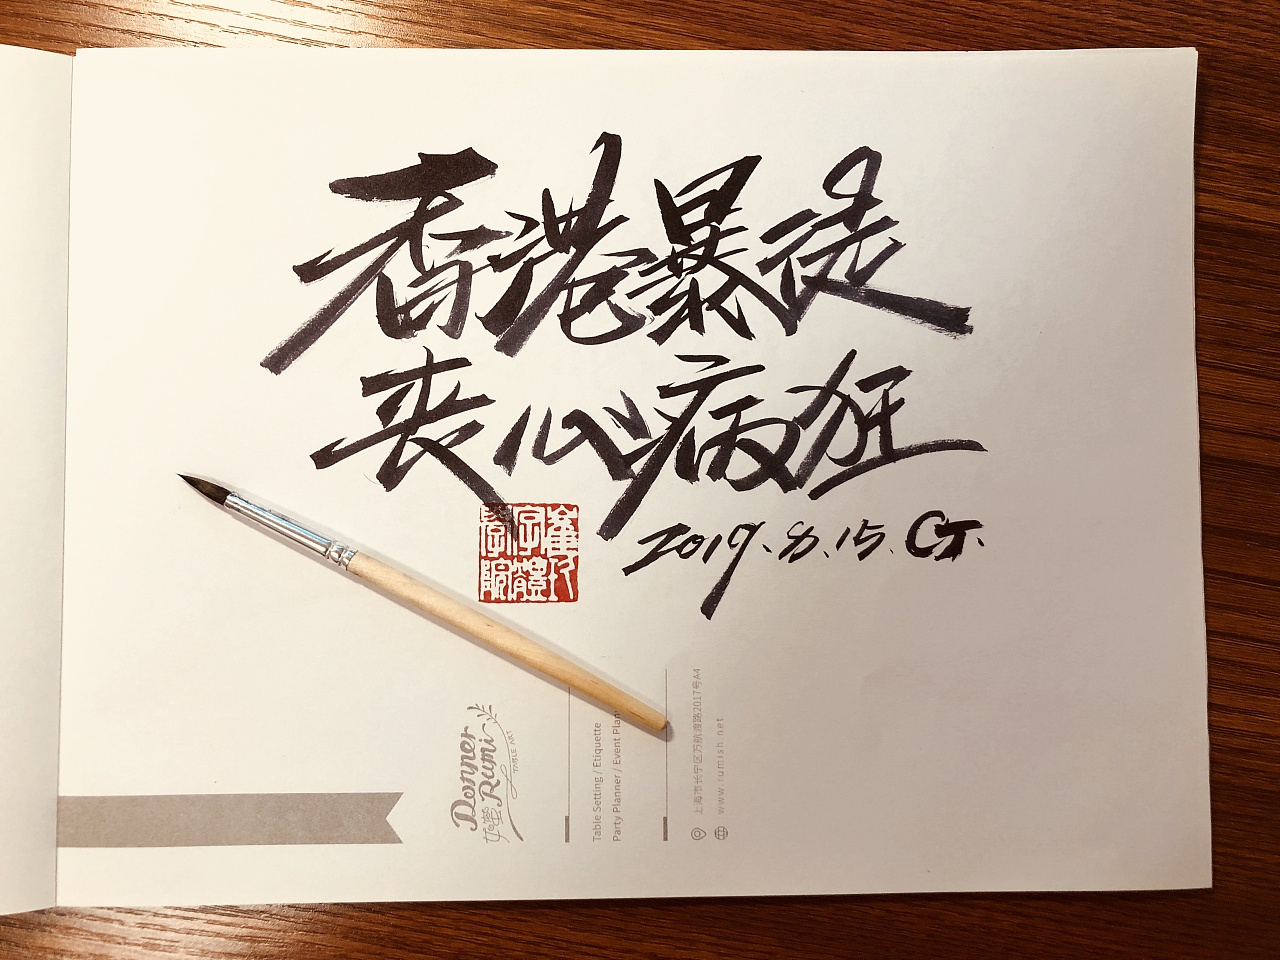 香港暴徒
丧心病狂
2019.8.15. CT.
崔玖
字體
學院
Donner
Rumi
TABLE ART
如蜜
Table Setting / Etiquette
Party Planner / Event Plan
上海市长宁区万航渡路2017号A4
www.rumish.net